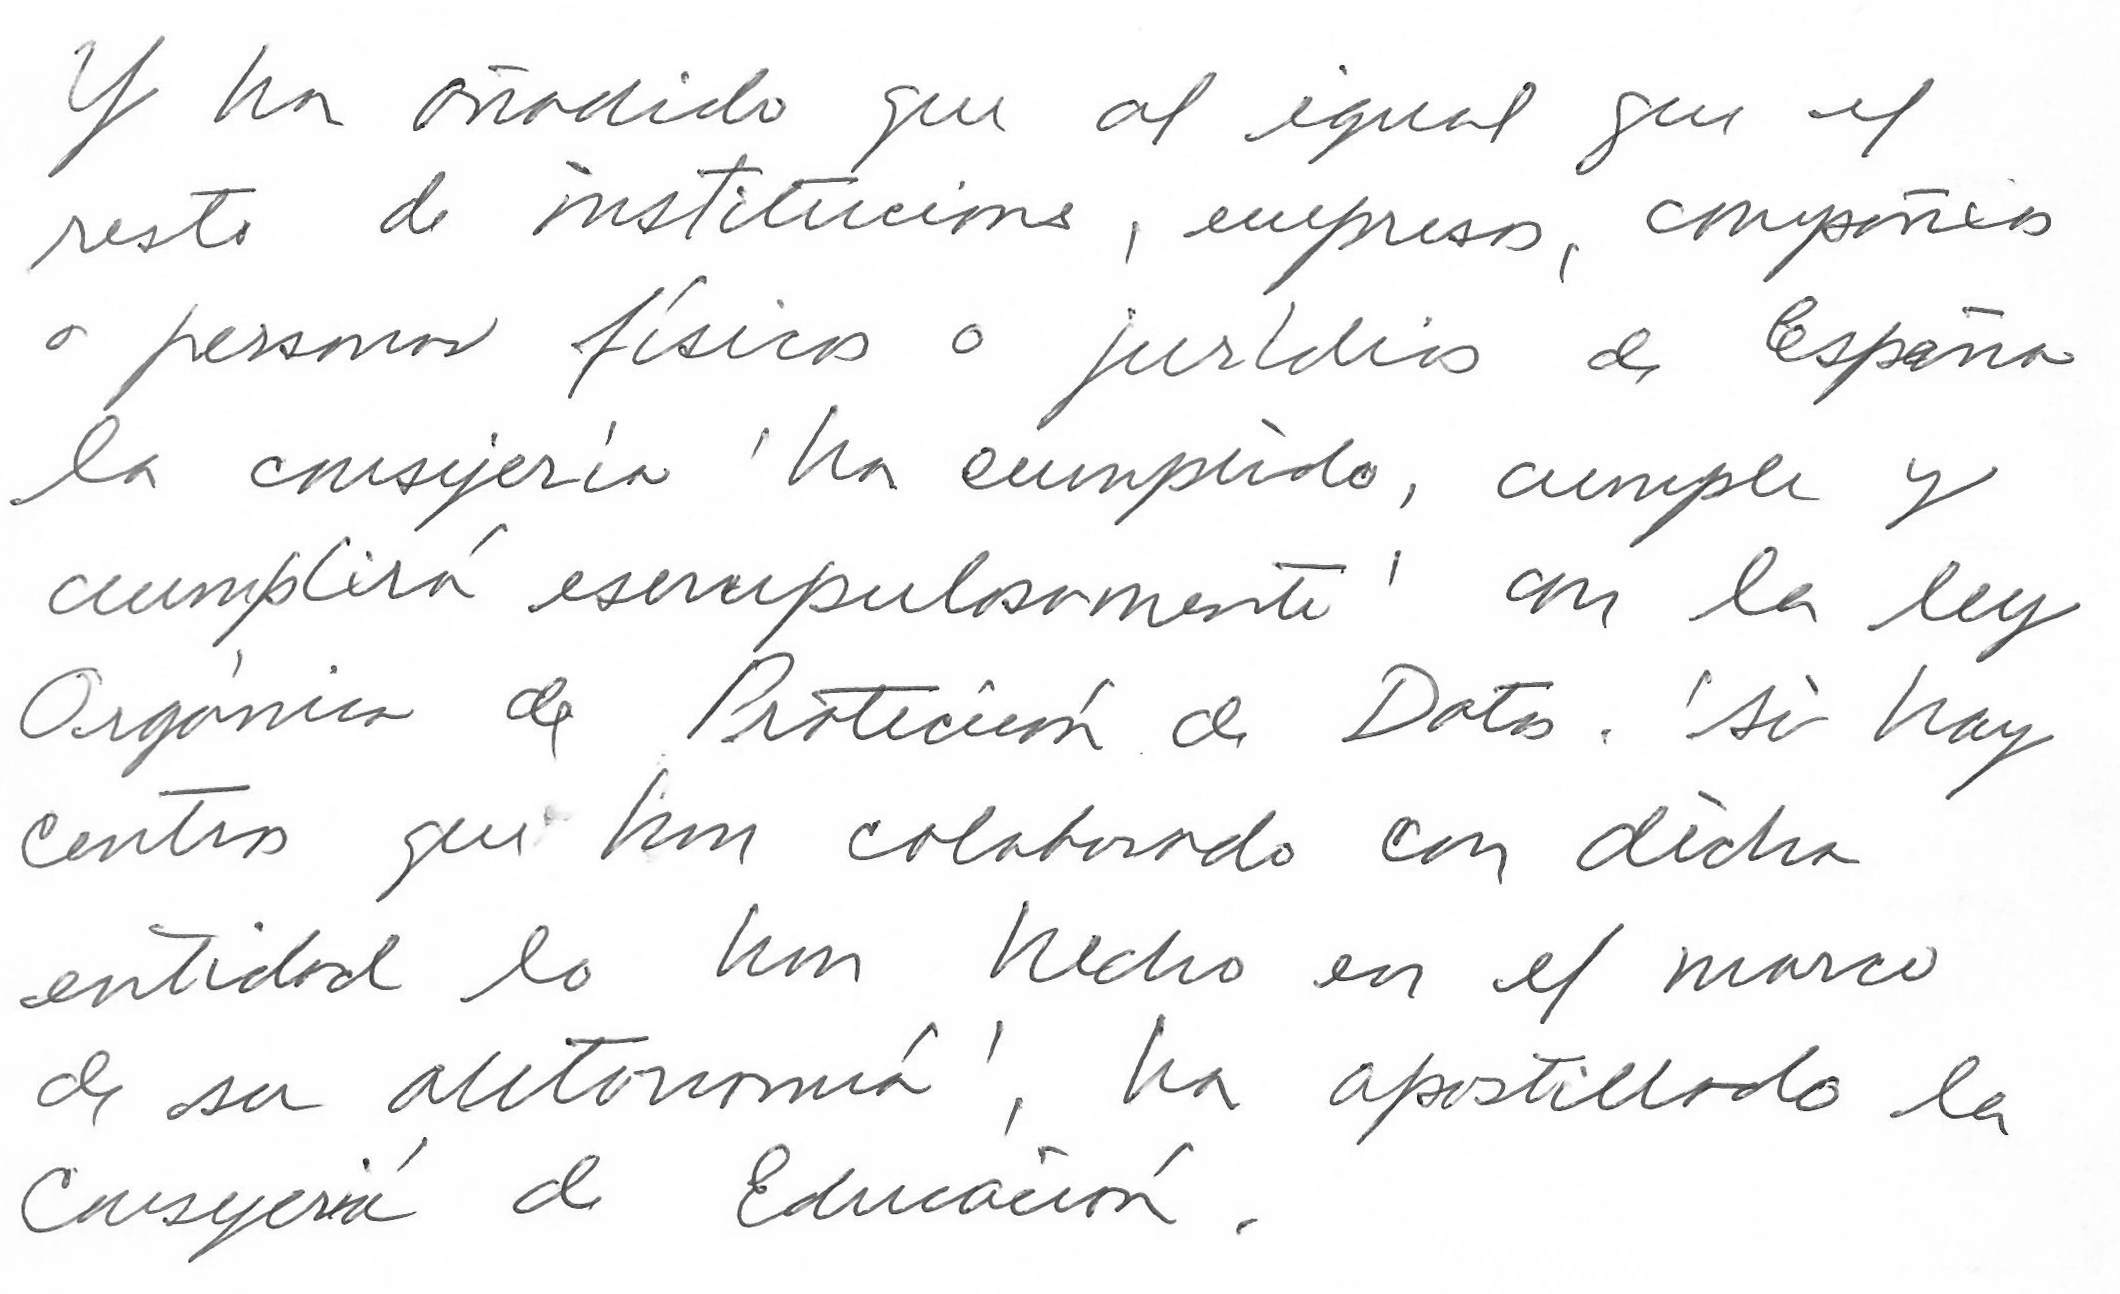 Y ha añadido que al igual que el
resto de instituciones, empresas, compañías
o personas físicas o jurídicas de España
la consejería 'ha cumplido, cumple y
cumplirá escrupulosamente' con la ley
Orgánica de Protección de Datos. 'Si hay
centros que han colaborado con dicha
entidad lo han hecho en el marco
de su autonomía', ha apostillado la
Consejería de Educación.